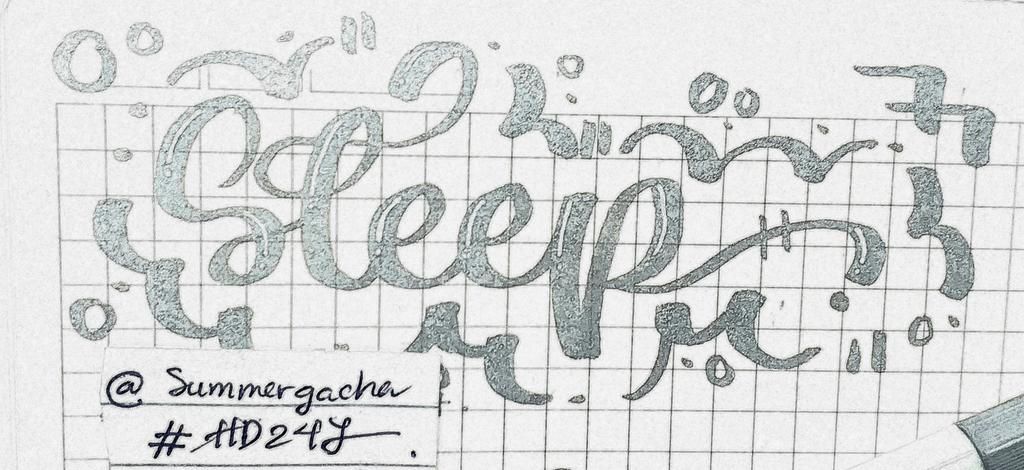 Sleep
@ Summergacha
# HD24Y.